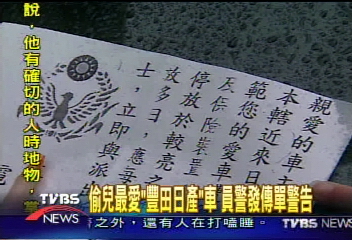 說，他有確切的人時地物，
親愛的車主
本轄近來日
範您的愛車
停放於較亮之
多日，應
士，立即與派
偷兒最愛"豐田日產"車 員警發傳單警告
TVBS
NEWS
之外，還有人在打嗑睡。
TVBS NEWS